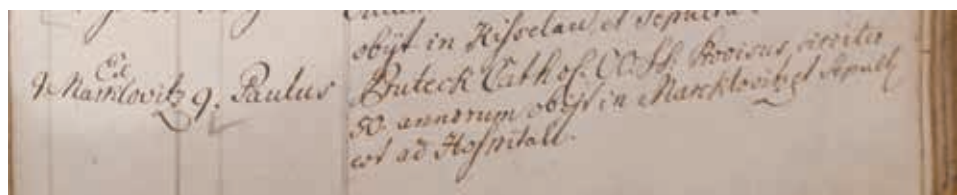 obijt in Kisselau, et Sepultu
Ex
Marklovitz 9. Paulus Bruteck Cathol. OO. SS. Provisus, circiter
50 annorum obijt in Marcklovitz et Sepult
est ad Hospitale.